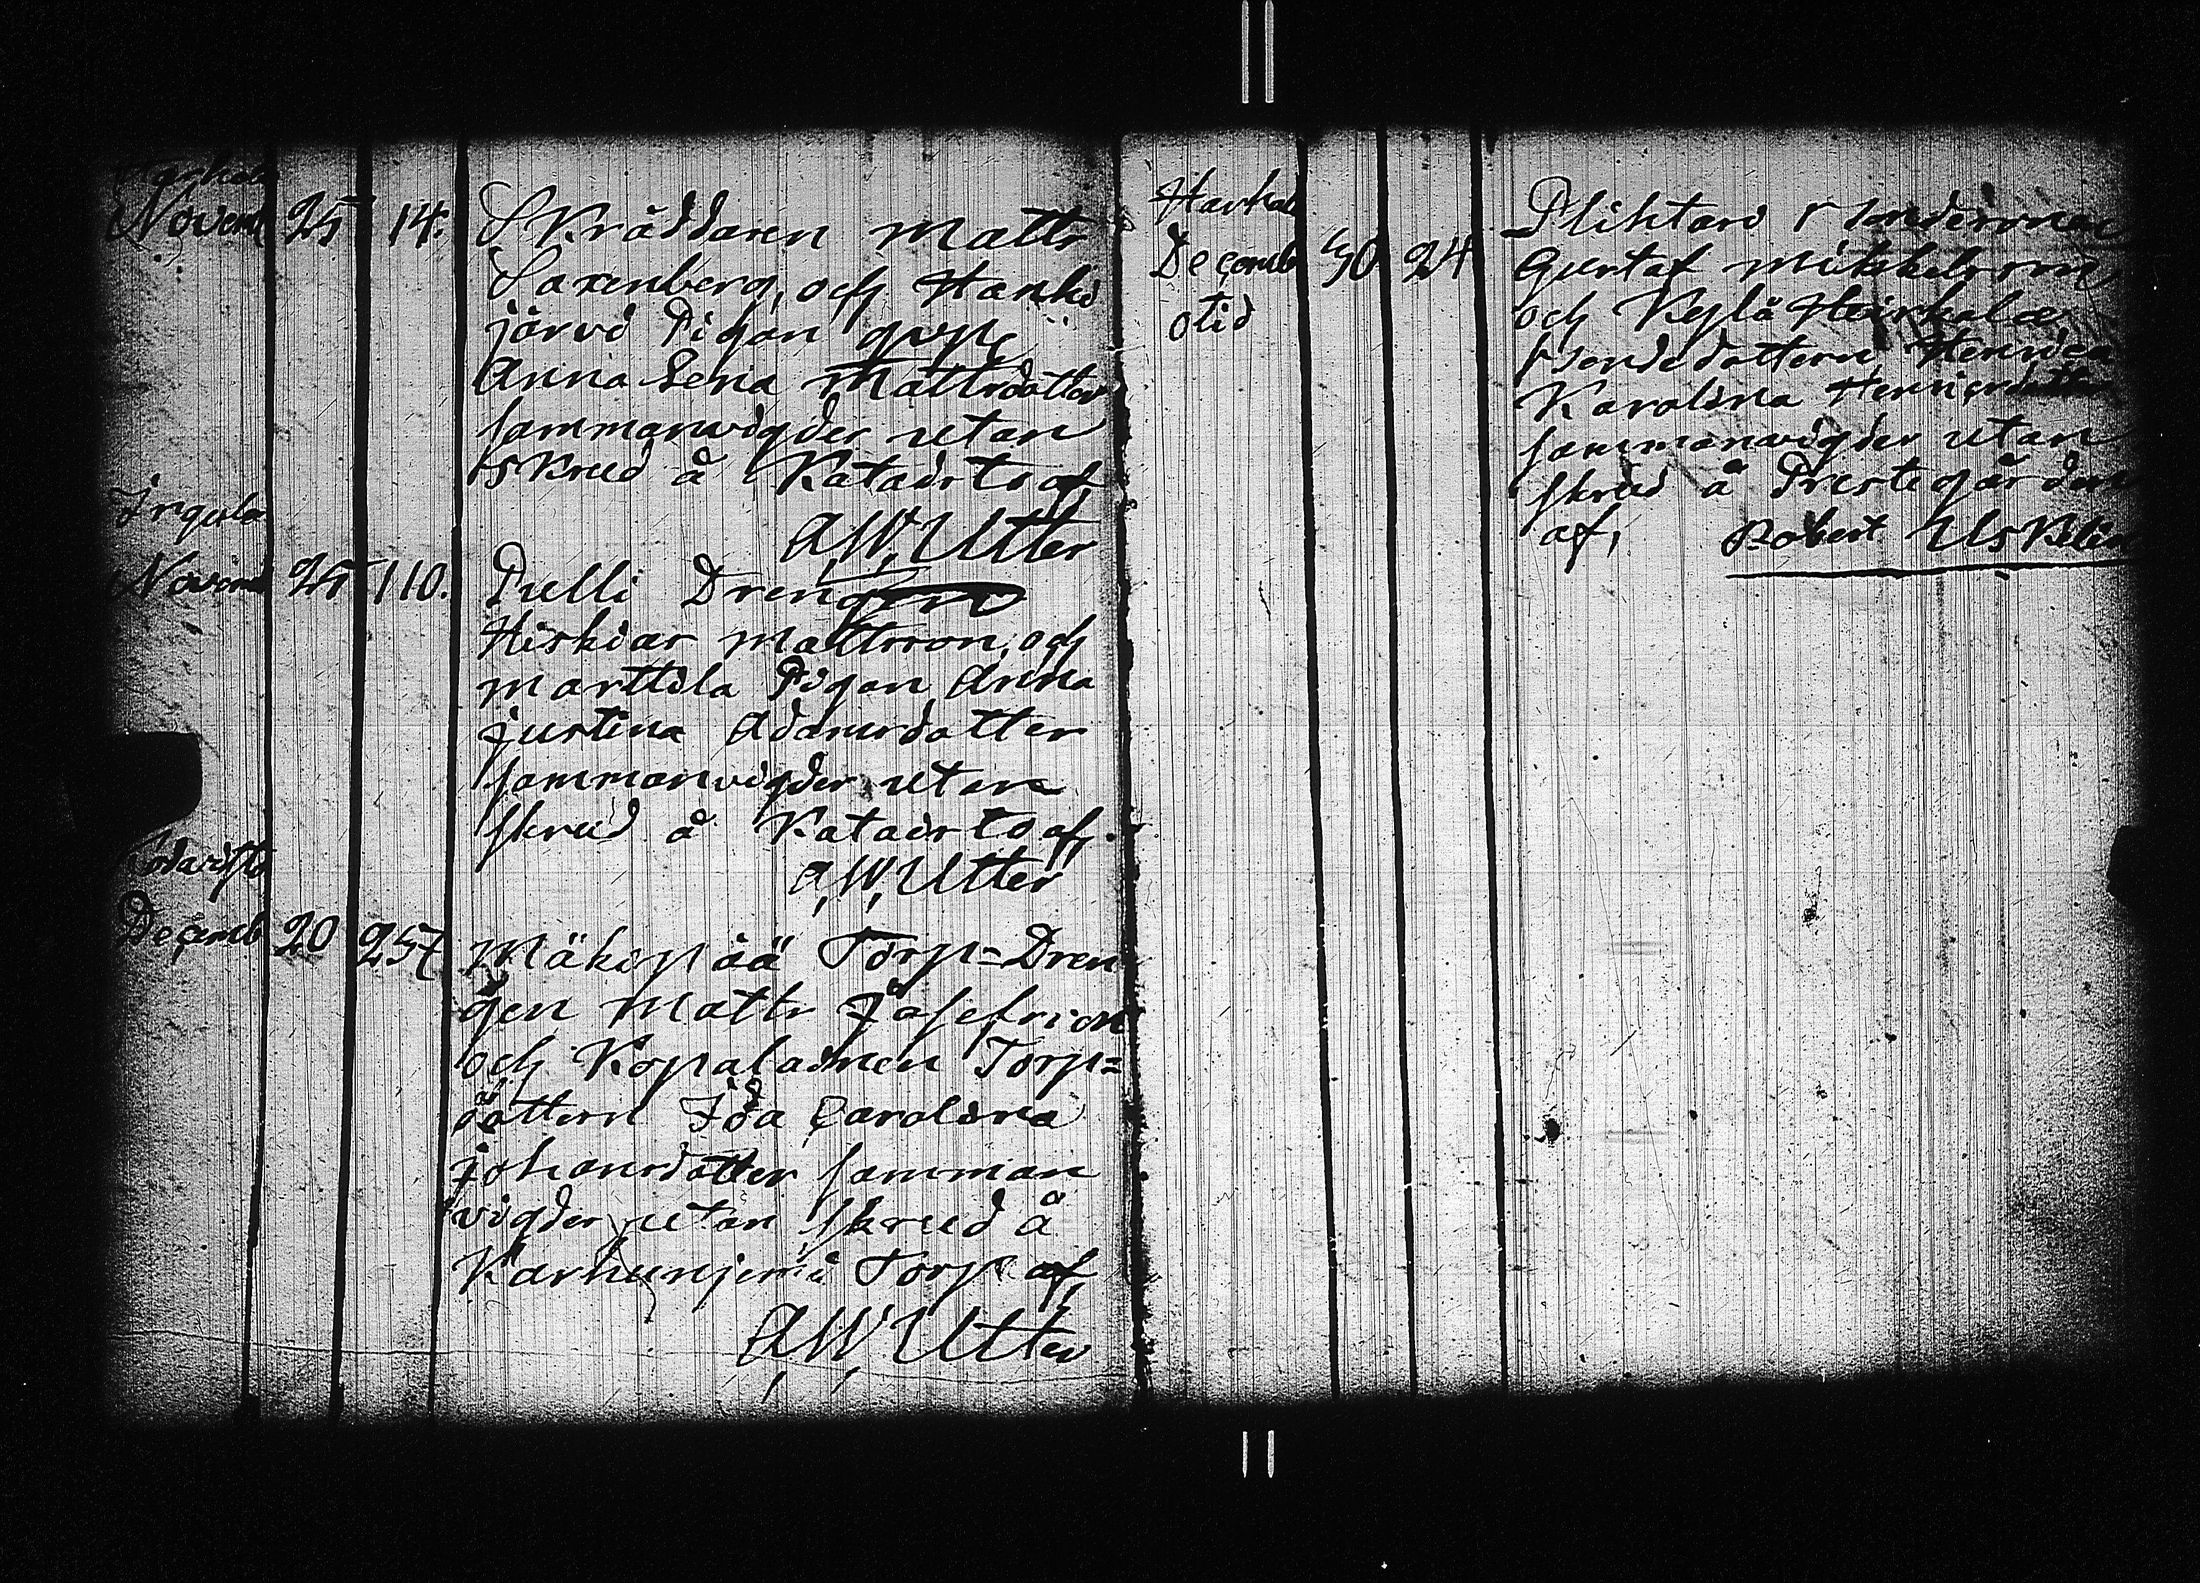 Novemb 25 14. Skräddaren Matts
Saxenberg, och Hanki
järvi Pigan
Anna Lena Mattsdotter
sammanvigder utan
skrud å Kataisto af
A, W, Utter
Irjala
Novemb 25 110. Prelli Drengen
Hiskias Mattsson, och
Marttila Pigan Anna
Justina Adamsdotter
sammanvigder utan
skrud å Kataisto af.
A, W, Utter
Decemb 20 257 Mäkipää Torp=Dren
gen Matts Josefsson
och Kopalainen Torp=
dottern Ida Carolina
Johansdotter samman
vigder utan skrud å
Karhunjemi Torp af
A, W, Utter
Harkal
Decemb 30 24 Plihtari Bondesonen
Gustaf Mikkelsson
otid
och Kylä Heikkala
Bondedottern Henrica
Karolina Henricsdotter
sammanvigder utan
skrud å Prestegården
af, Robert